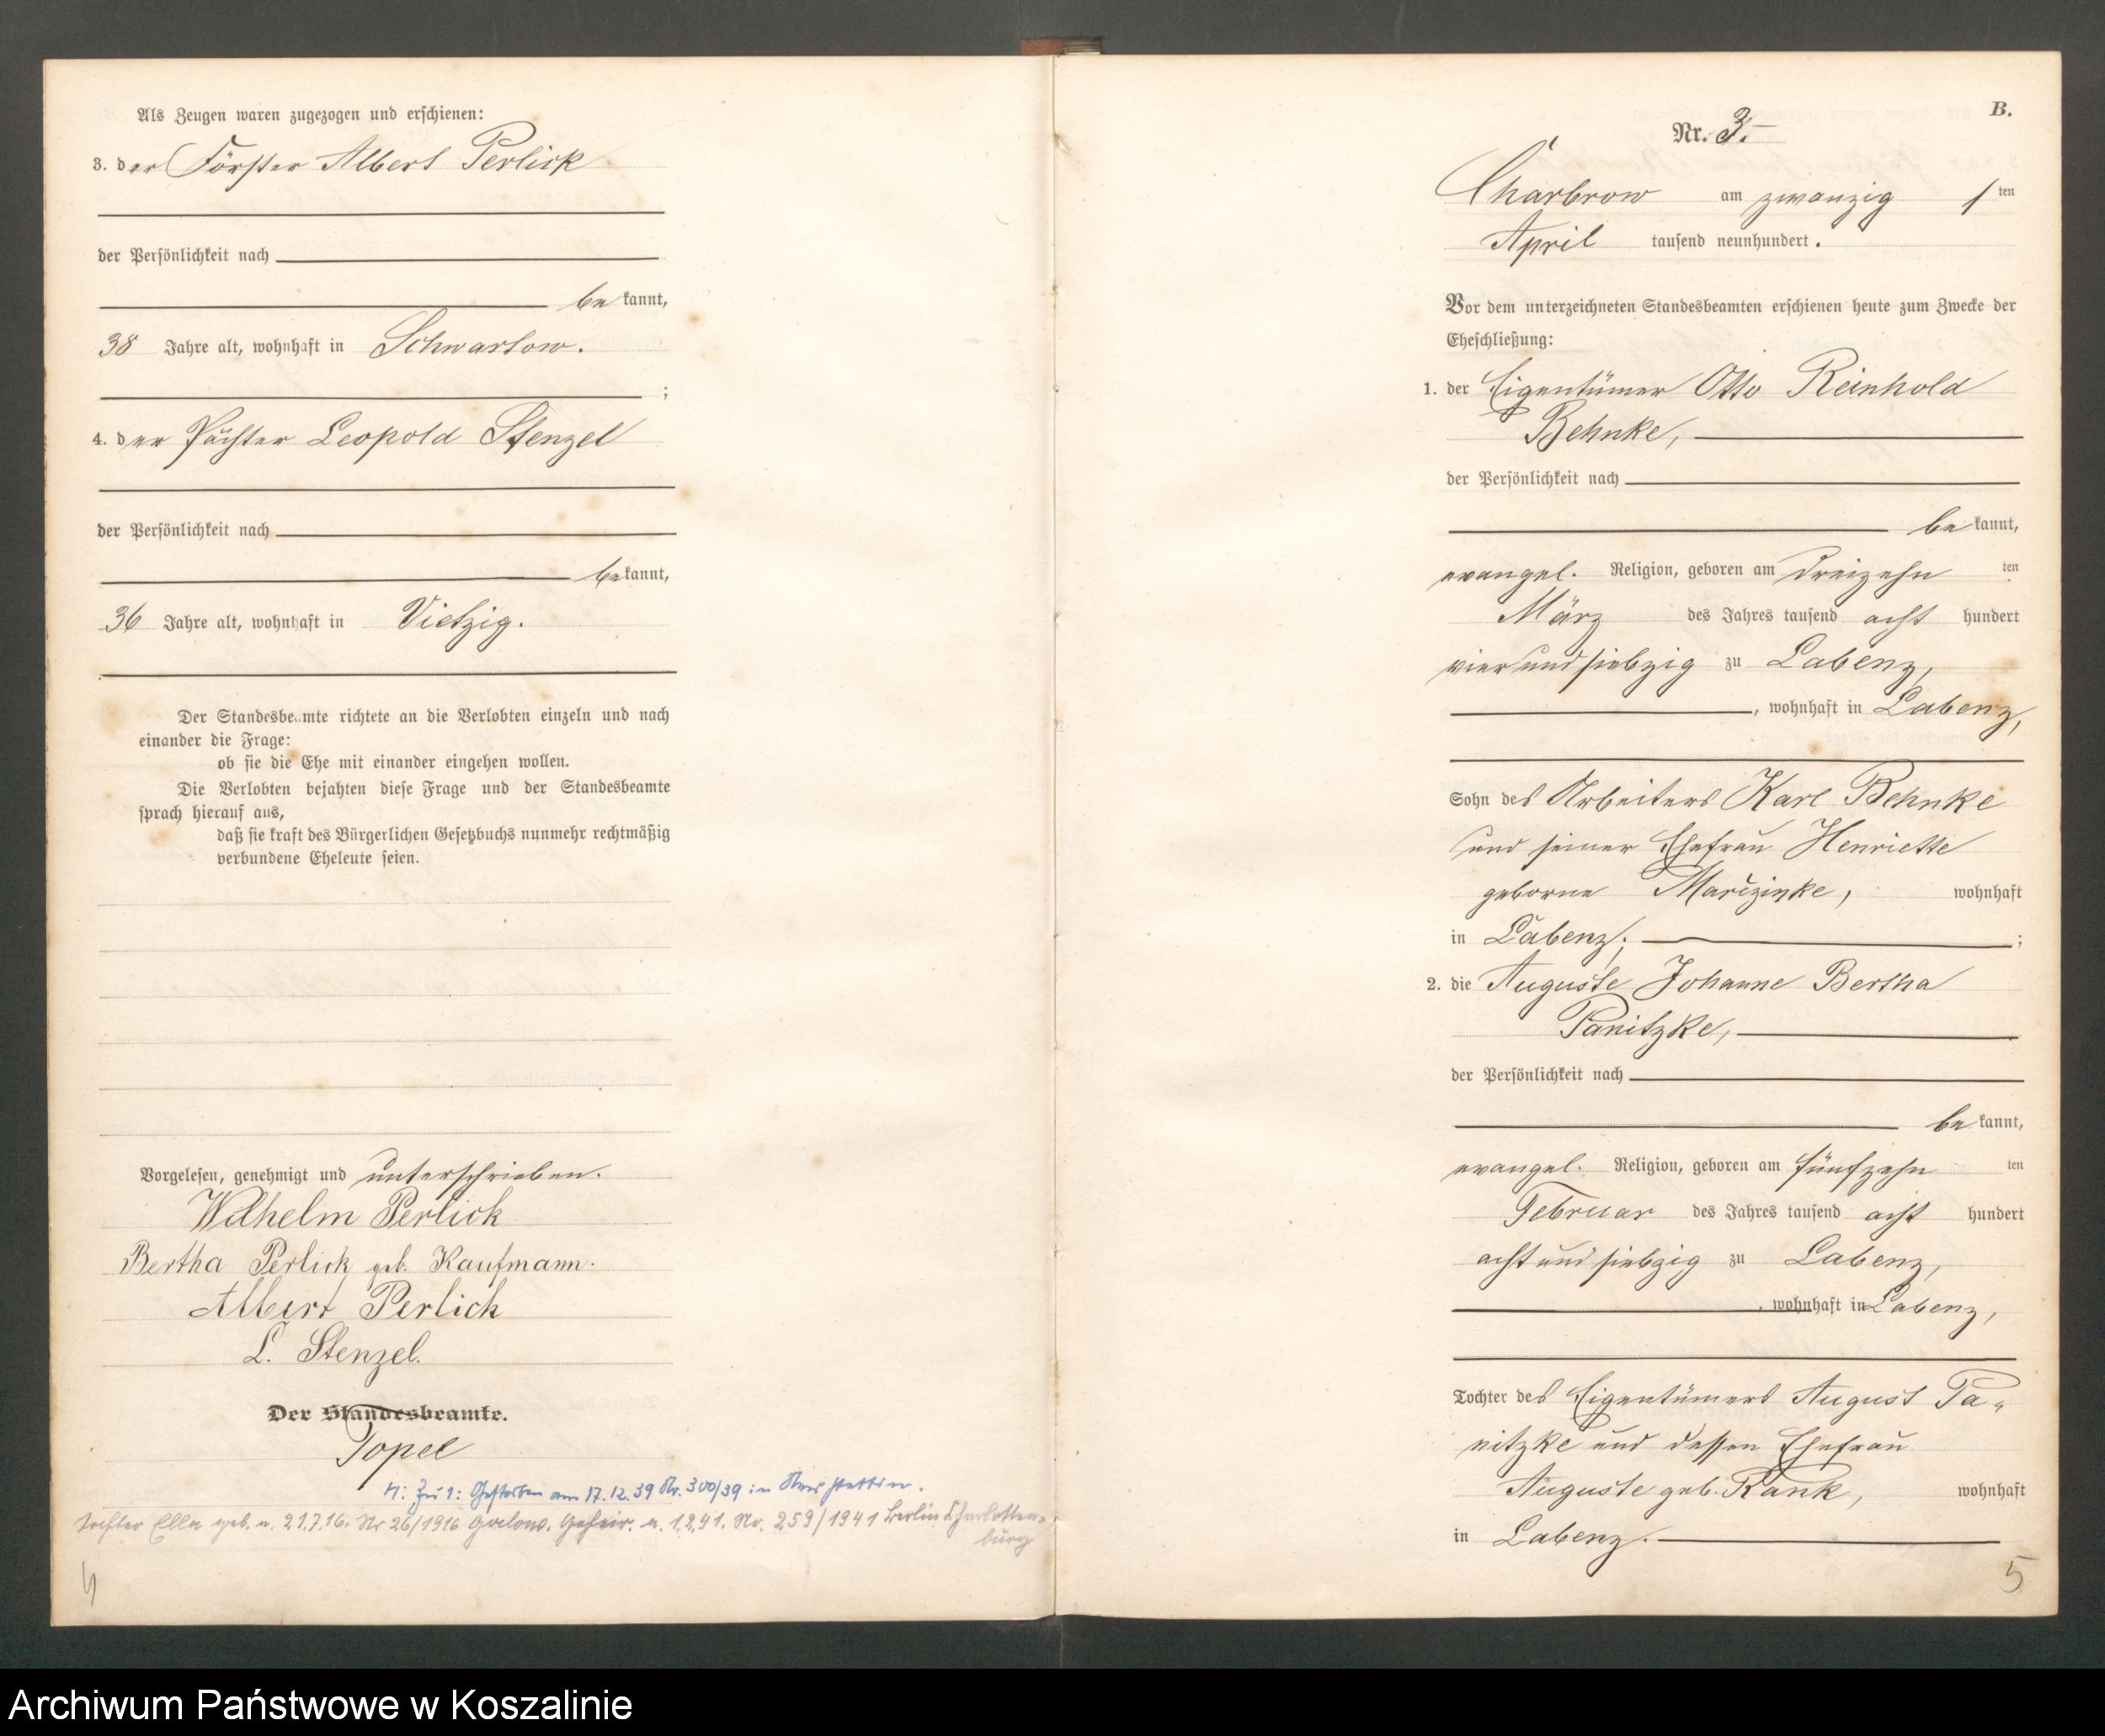 Als Zeugen waren zugezogen und erschienen:
3. der Förster Albert Perlick
der Persönlichkeit nach
be kannt,
38 Jahre alt, wohnhaft in Schwartow.
;
4. der Pächter Leopold Stenzel
der Persönlichkeit nach
be kannt,
36 Jahre alt, wohnhaft in Vietzig.
Der Standesbeamte richtete an die Verlobten einzeln und nach
einander die Frage:
ob sie die Ehe mit einander eingehen wollen.
Die Verlobten bejahten diese Frage und der Standesbeamte
sprach hierauf aus,
daß sie kraft des Bürgerlichen Gesetzbuchs nunmehr rechtmäßig
verbundene Eheleute seien.
Vorgelesen, genehmigt und unterschrieben.
Wilhelm Perlick
Bertha Perlick geb. Kaufmann.
Albert Perlick
L. Stenzel.
Der Standesbeamte.
Topel
H: Zu 1: Gestorben am 17.12.39 Nr. 300/39 in Neustettin.
Tochter Ella geb. a. 21.7.16. Nr 26/1916 Geheir. a. 1.2.41. Nr. 259/1941 Berlin Charlotten-
burg
4
B.
Nr. 3.
Charbrow am zwanzig 1 ten
April tausend neunhundert.
Vor dem unterzeichneten Standesbeamten erschienen heute zum Zwecke der
Eheschließung:
1. der Eigentümer Otto Reinhold
Behnke,
der Persönlichkeit nach
be kannt,
evangel. Religion, geboren am dreizehn ten
März des Jahres tausend acht hundert
vier und siebzig zu Labenz,
, wohnhaft in Labenz,
Sohn des Arbeiters Karl Behnke
und seiner Ehefrau Henriette
geborne wohnhaft
in Labenz; ;
2. die Auguste Johanne Bertha
Panitzke,
der Persönlichkeit nach
be kannt,
evangel. Religion, geboren am fünfzehn ten
Februar des Jahres tausend acht hundert
acht und siebzig zu Labenz,
, wohnhaft in Labenz,
Tochter des Eigentümers August Pa-
nitzke und dessen Ehefrau
Auguste geb. Rank, wohnhaft
in Labenz.
5
Archiwum Państwowe w Koszalinie